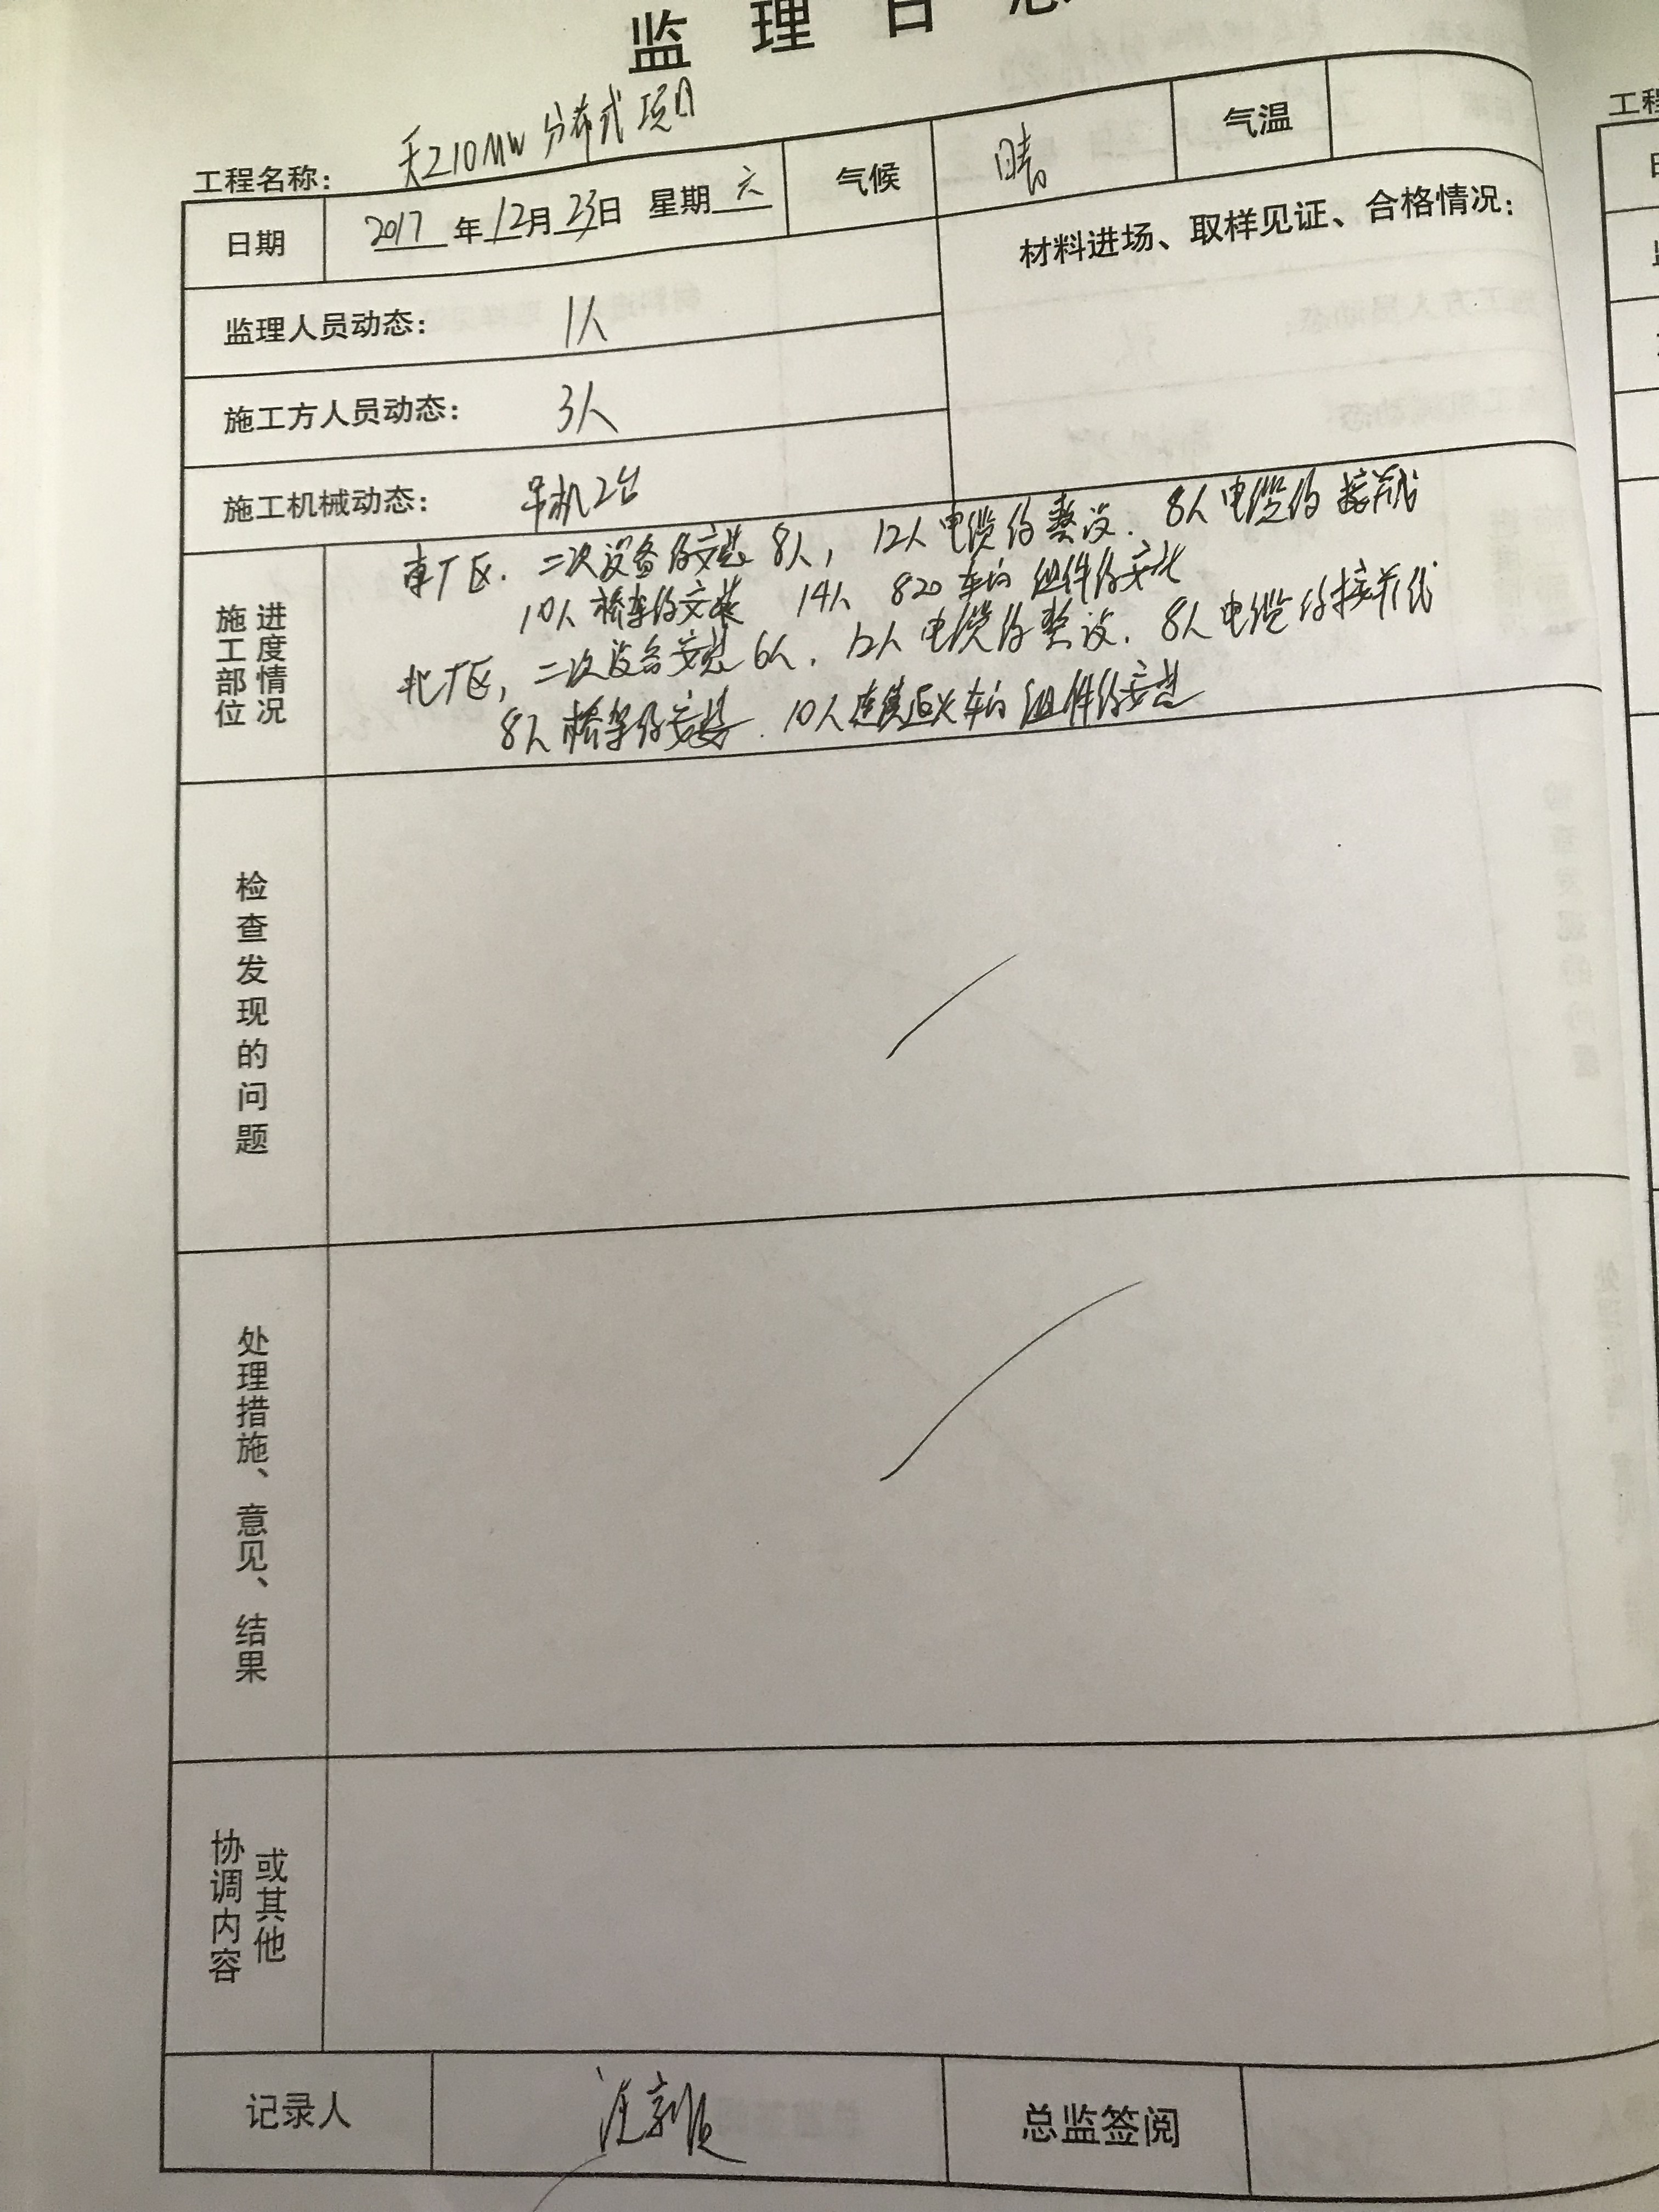 监理日志
工程名称： 天210MW分布式项目
日期 2017年12月23日 星期六 气候 晴 气温
监理人员动态： 1人 材料进场、取样见证、合格情况：
施工方人员动态： 3人
施工机械动态： 吊机2台
施工部位 进度情况
东厂区. 二次设备的安装8人, 12人电缆的敷设. 8人电缆的接
10人桥架的安装 14人 820车间组件的安装
北厂区, 二次设备安装6人. 12人电缆的敷设. 8人电缆的接
8人桥架的安装. 10人连续退火车间组件的安装
检查发现的问题
处理措施、意见、结果
协调内容 或其他
记录人 总监签阅
工程